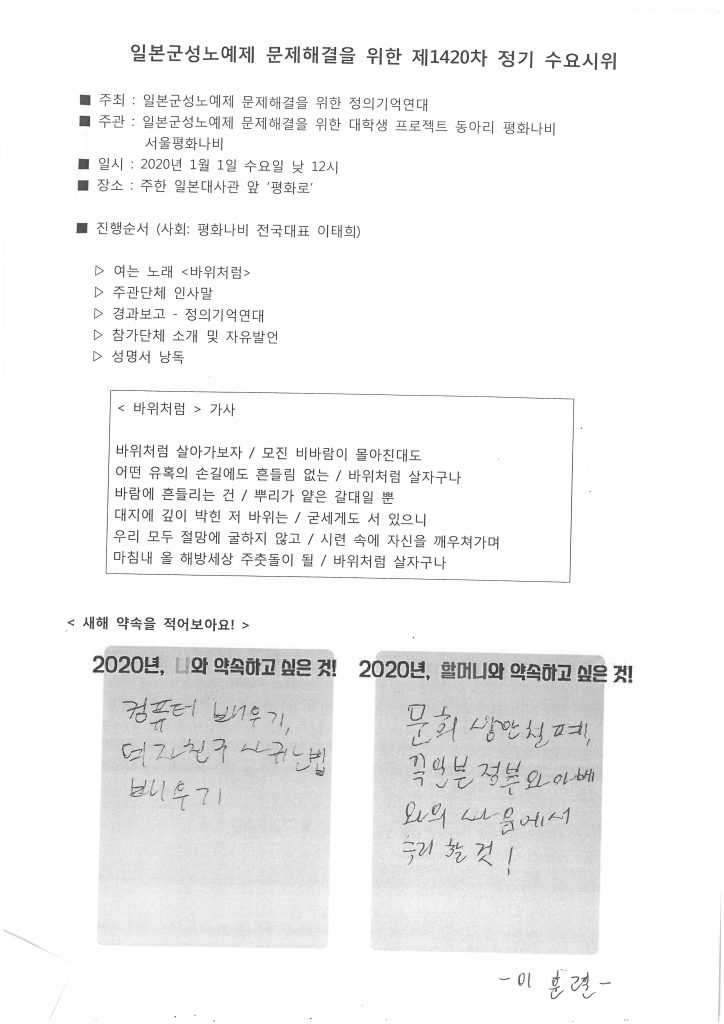 일본군성노예제 문제해결을 위한 제1420차 정기 수요시위
■ 주최 : 일본군성노예제 문제해결을 위한 정의기억연대
■ 주관 : 일본군성노예제 문제해결을 위한 대학생 프로젝트 동아리 평화나비
서울평화나비
■ 일시 : 2020년 1월 1일 수요일 낮 12시
■ 장소 : 주한 일본대사관 앞 '평화로'
■ 진행순서 (사회: 평화나비 전국대표 이태희)
▷ 여는 노래 <바위처럼>
▷ 주관단체 인사말
▷ 경과보고 - 정의기억연대
▷ 참가단체 소개 및 자유발언
▷ 성명서 낭독
< 바위처럼 > 가사
바위처럼 살아가보자 / 모진 비바람이 몰아친대도
어떤 유혹의 손길에도 흔들림 없는 / 바위처럼 살자구나
바람에 흔들리는 건 / 뿌리가 얕은 갈대일 뿐
대지에 깊이 박힌 저 바위는 / 굳세게도 서 있으니
우리 모두 절망에 굴하지 않고 / 시련 속에 자신을 깨우쳐가며
마침내 올 해방세상 주춧돌이 될 / 바위처럼 살자구나
< 새해 약속을 적어보아요! >
2020년, 나와 약속하고 싶은 것!
컴퓨터 배우기,
여자친구 사귀는법
배우기
2020년, 할머니와 약속하고 싶은 것!
문희상안철폐,
꼭 일본정부와 아베
와의 싸움에서
승리 할 것!
-이 훈 련-